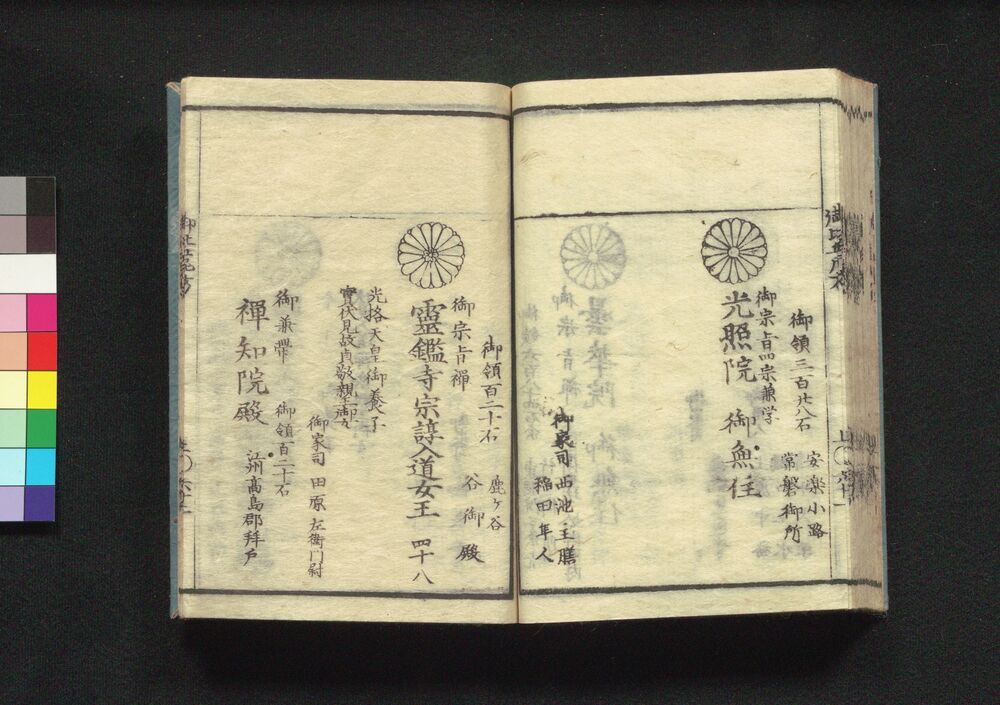 安楽小路
常磐御所
御領三百廿八石
御宗旨四宗兼学
光照院 御無住
御家司 西池主膳
稲田隼人
御領百二十石
鹿ヶ谷
谷御殿
御宗旨禅
靈鑑寺宗諄入道女王 四十八
光格天皇御養子
實伏見故貞敬親王御女
御家司 田原左衛門尉
御兼帯 御領百二十石
江州高島郡拜戸
禪知院殿